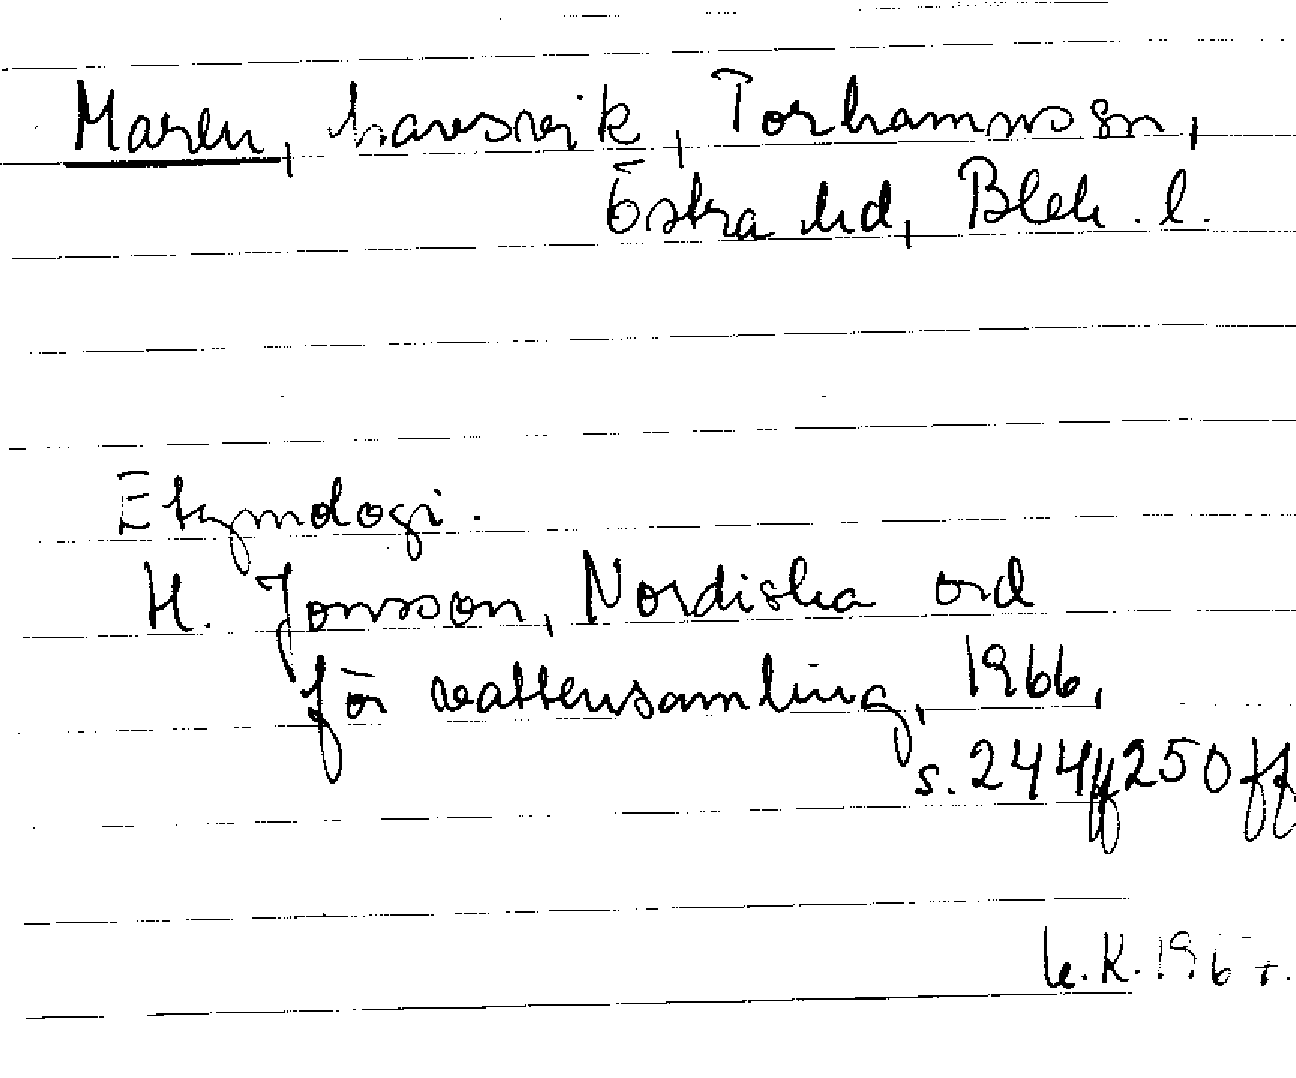 Maren, havsvik, Torhamns sn,
Östra hd, Blek. l.
Etymologi.
H. Jonsson, Nordiska ord
för vattensamling, 1966,
s. 244ff 250ff
K. 196